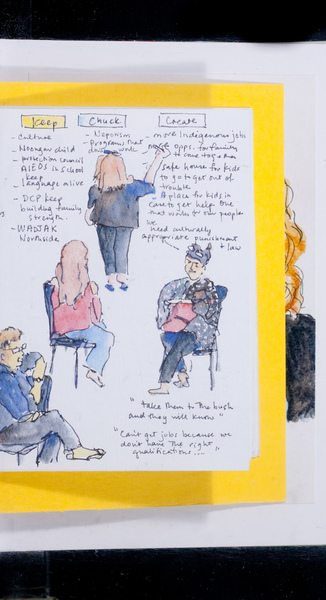 Keep
- Culture
- Noongar child
protection council
AIEDS in School
keep
language alive
- DCP keep
building family
strength.
- WADJAK
Northside
Chuck
- Nepotism
- Programs that
don't work
Create
- more Indigenous jobs
more opps. for family
to come together
safe house for kids
to go to get out of
trouble
A place for kids in
Care to get help. One
that works for our people
we
need culturally
appropriate punishment
+ law
"take them to the bush
and they will know"
"Can't get jobs because we
don't have the right
qualifications..."